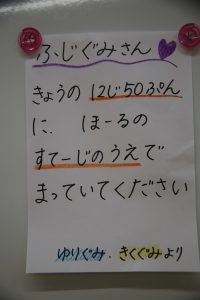 ふじぐみさん
きょうの 12じ50ぷん
に、 ほーるの
すてーじのうえで
まっていてください
ゆりぐみ．きくぐみより